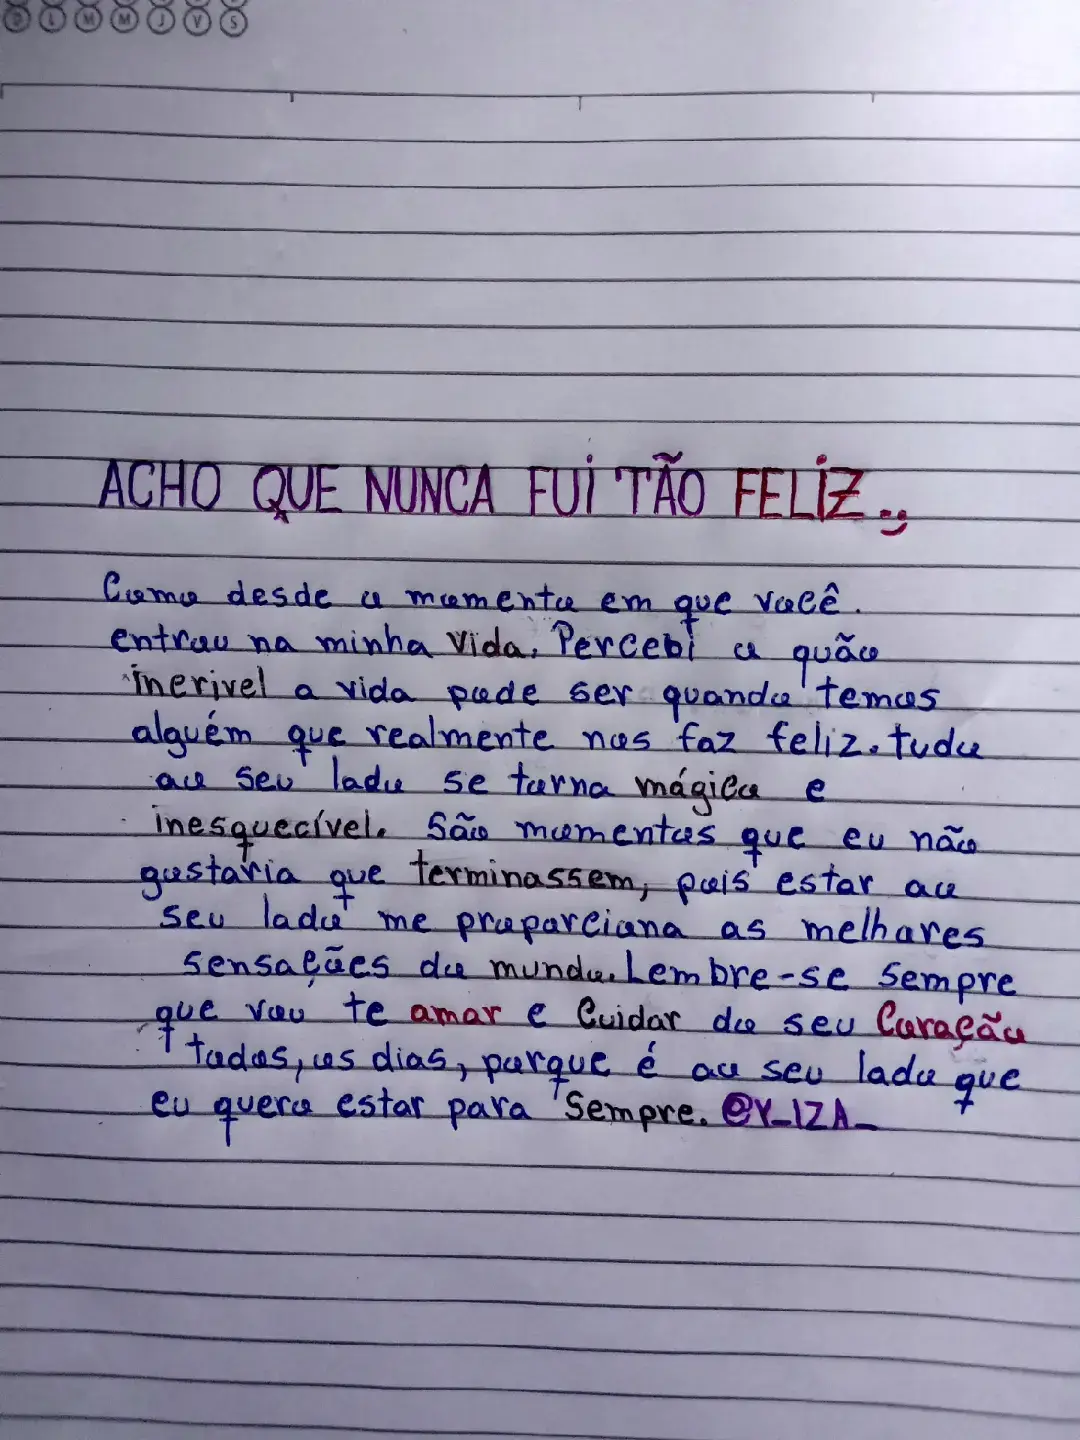 D L M M J V S
ACHO QUE NUNCA FUI TÃO FELIZ
Como desde o momento em que você.
entrou na minha vida. Percebi o quão
inerivel a vida pode ser quando temos
alguém que realmente nos faz feliz. tudo
ao seu lado se torna mágico e
inesquecível. São momentos que eu não
gostaria que terminassem, pois estar ao
seu lado me proporciona as melhores
sensações do mundo. Lembre-se sempre
que vou te amar e Cuidar do seu Coração
todos, os dias, porque é ao seu lado que
eu quero estar para Sempre. @Y_IZA_